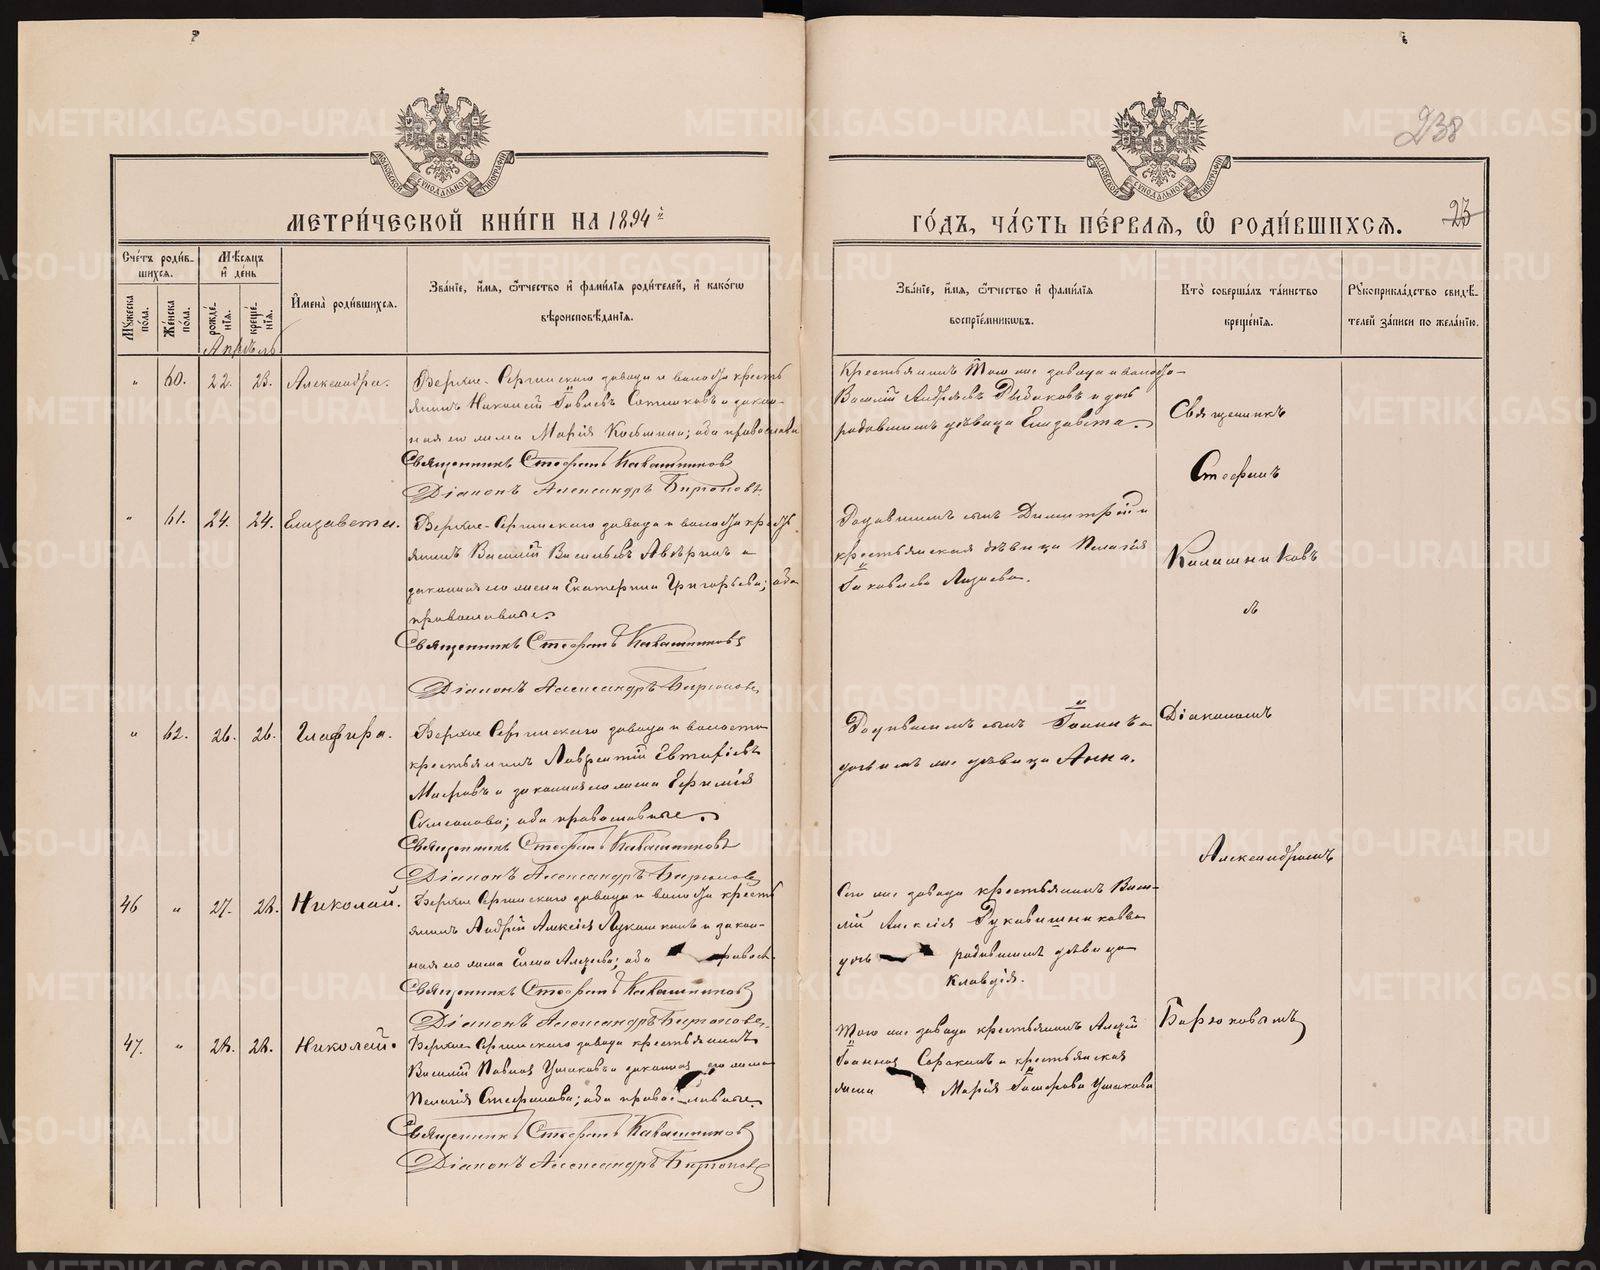 238
МЕТРИ́ЧЕСКОЙ КНИ́ГИ НА 1894 й
ГО́ДЪ, ЧА́СТЬ ПЕ́РВАЯ, Ѡ РОДИ́ВШИХСЯ.
23
Сче́тъ роди́в-
шихся.
Мѣ́сяцъ
и де́нь
Мꙋ́жеска по́ла.
Же́нска по́ла.
рожде́-
нїя.
креще́-
нїя.
Имена̀ роди́вшихся.
Зва́нїе, и́мя, ѻ́тчество и фами́лїя роди́телей, и како́гѡ
вѣроисповѣ́данїя.
Зва́нїе, и́мя, ѻ́тчество и фами́лїя
воспрїе́мникѡвъ.
Кто̀ соверша́лъ та́инство
креще́нїя.
Рꙋкоприкла́дство свидѣ́-
телей за́писи по жела́нїю.
Апрѣль
" 60. 22. 23. Александра.
Верхне-Сергинскаго завода и волости кресть
янинъ Николай Іовлевъ и закон-
ная его жена Марія Козьмина; оба православн
Священникъ Стефанъ Калашников
Діаконъ Александръ Бирюковъ
Крестьянинъ того же завода и волости
Василій Андреевъ Рыбаковъ и дочь
родившаго дѣвица Елизавета.
Священникъ
Стефанъ
" 61. 24. 24. Елизавета.
Верхне-Сергинскаго завода и волости крест
янинъ Василій Васильевъ и
законная его жена Екатерина Григорьева; оба
православные.
Священникъ Стефанъ Калашниковъ
Діаконъ Александръ Бирюковъ
Родившаго сынъ Димитрій и
крестьянская дѣвица Пелагія
Іаковлева
Калашниковъ
съ
" 62. 26. 26. Глафира.
Верхне Сергинскаго завода и волости
крестьянинъ Лаврентій
и законная его жена Ефимія
оба православные.
Священникъ Стефанъ Калашниковъ
Діаконъ Александръ Бирюков
Родившаго сынъ Іоаннъ и
дочь ихъ же дѣвица Анна.
Діакономъ
Александромъ
46 " 27. 28. Николай.
Верхне Сергинскаго завода и волости кресть
янинъ Андрей Алексія Лукашинъ и закон-
ная его жена Елена оба правос.
Священникъ Стефанъ Калашников
Діаконъ Александръ Бирюков
Сего же завода крестьянинъ Васи-
лій Алексія Рукавишниковъ и
дочь родившаго дѣвица
Клавдія.
47. " 28. 28. Николай.
Верхне Сергинскаго завода крестьянинъ
Василій Павлов Ушаковъ и законная его жена
Пелагія Стефанова; оба православные.
Священникъ Стефанъ Калашников
Діаконъ Александръ Бирюков
Того же завода крестьянинъ
Іоаннов Сорокинъ и крестьянская
жена Марія Ушакова
Бирюковымъ